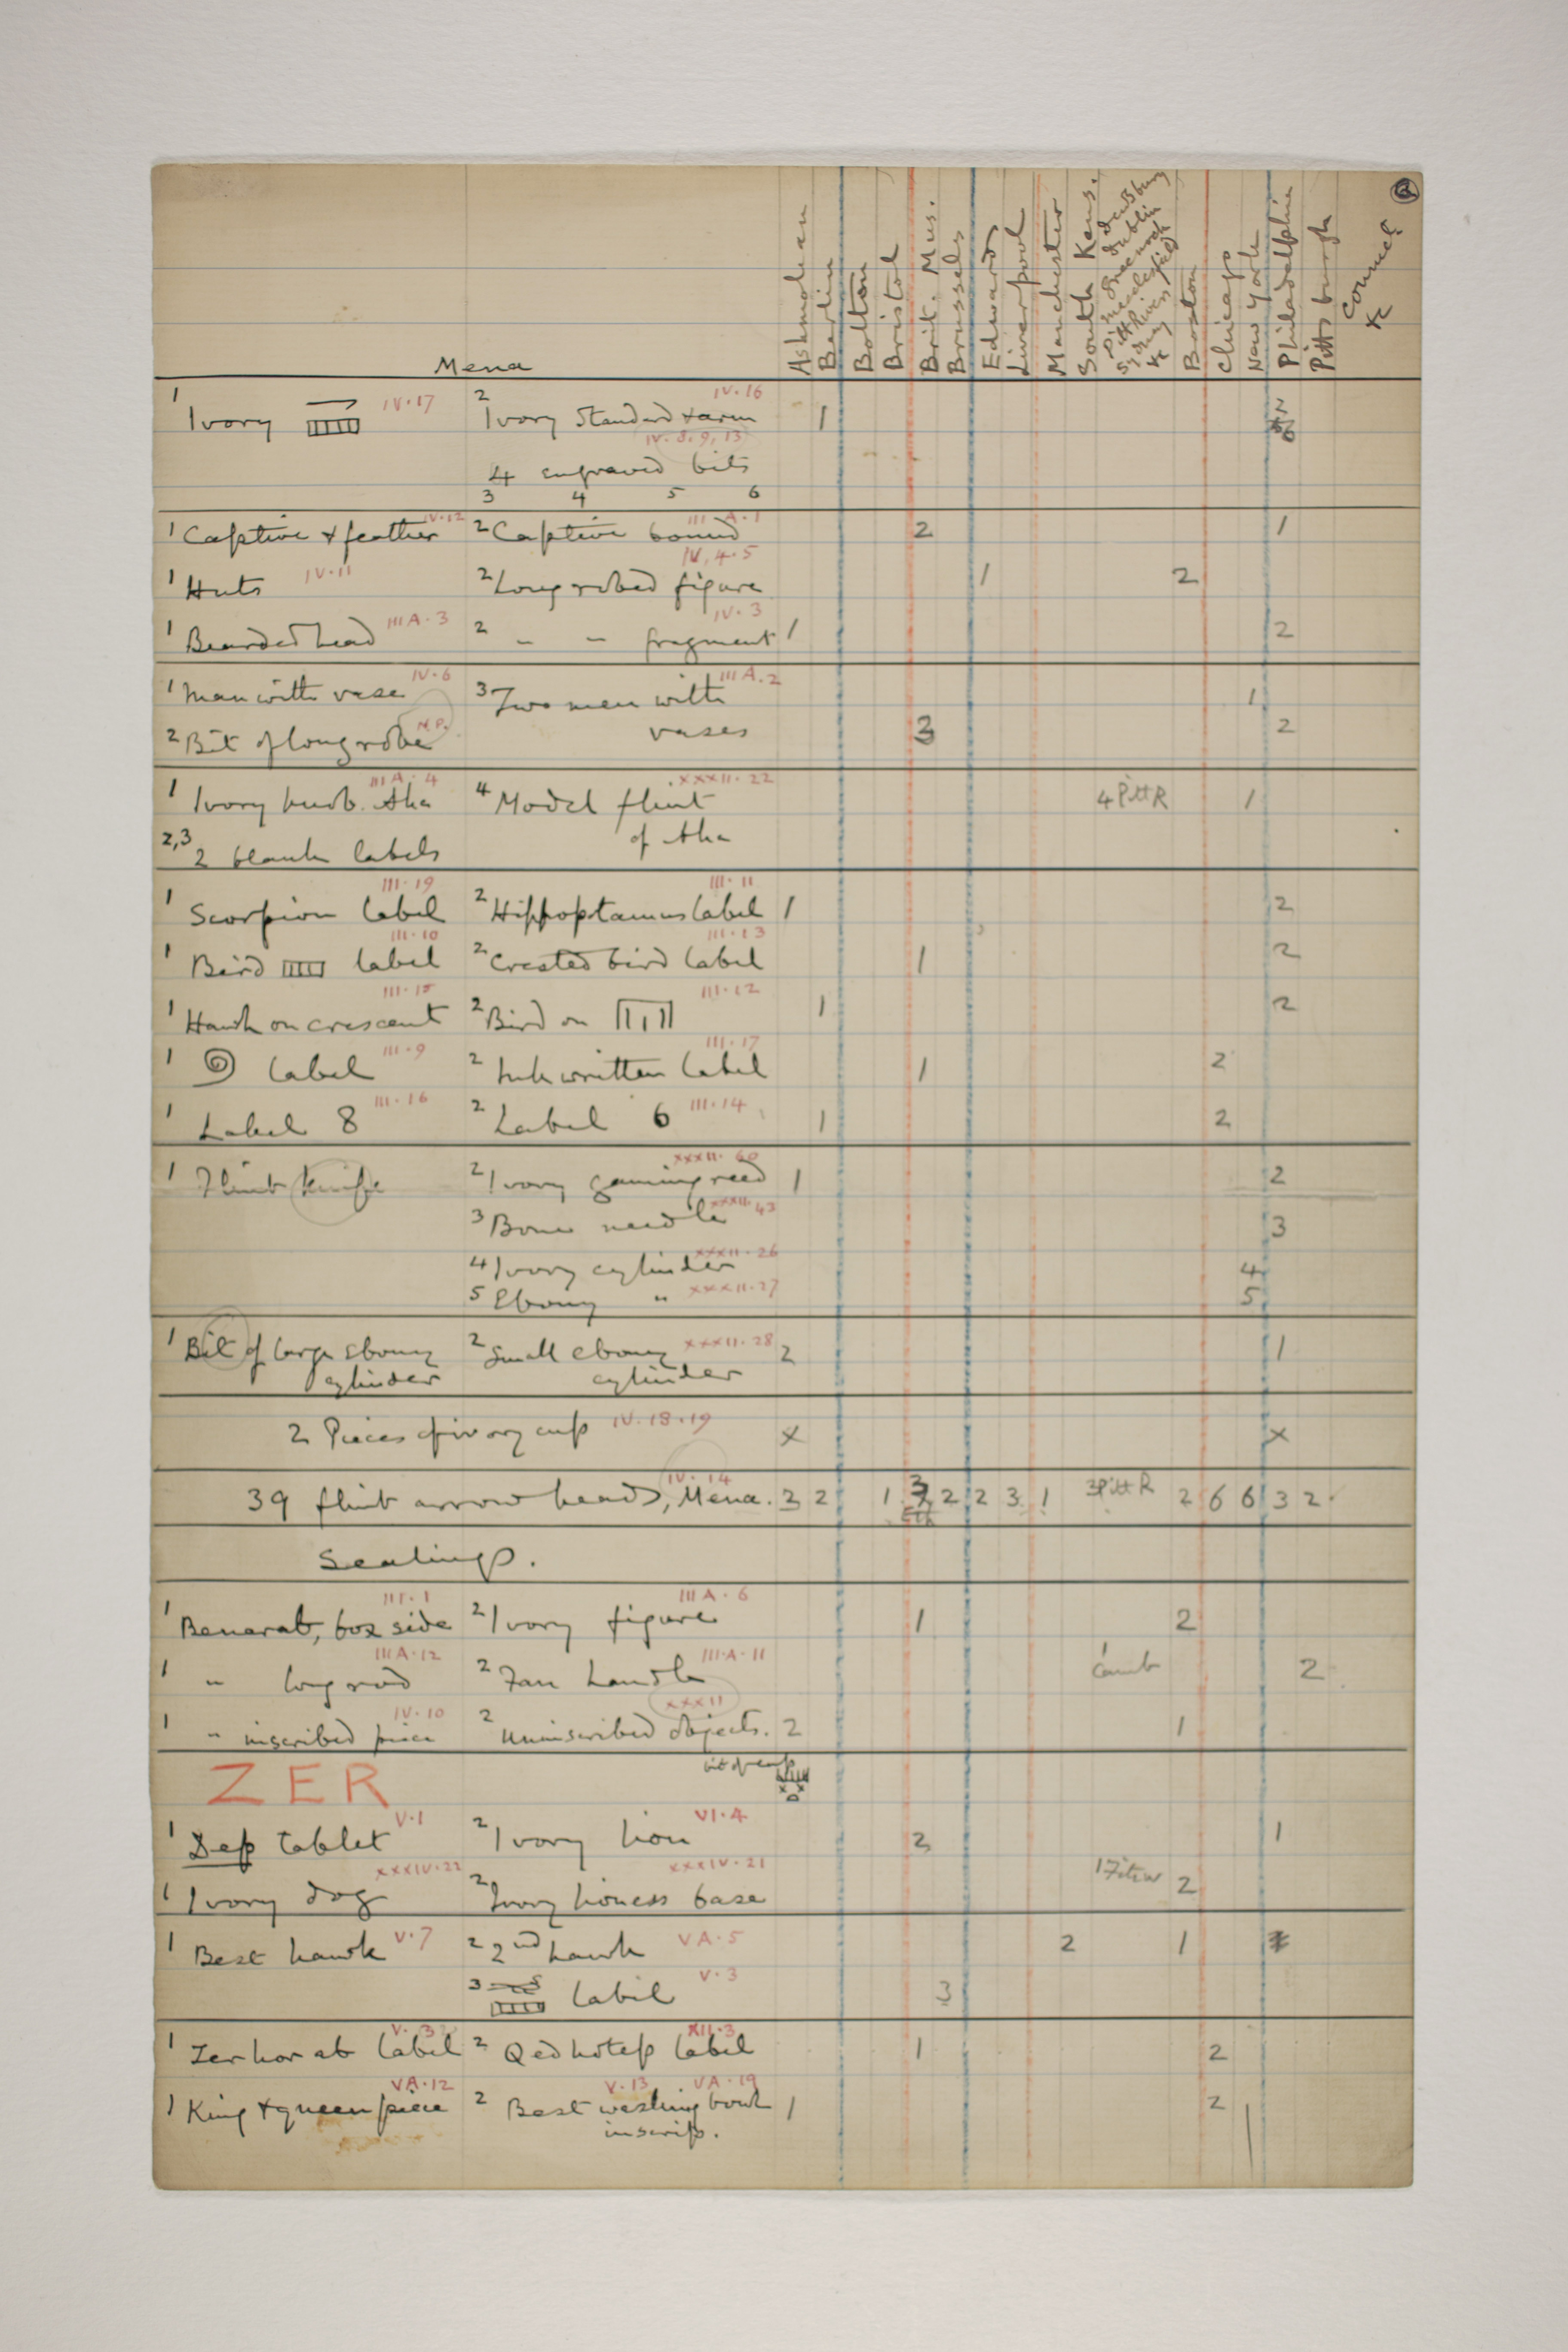 Ashmolean Berlin Bolton Bristol Brit. Mus. Brussels Edwards Liverpool Manchester South Kens. Boston Chicago New York Philadelphia Pittsburgh
Dewsbury
Dublin
Greenock
Macclesfield
Pitt Rivers
Sydney
&c
Mena
1 Ivory IV.17 2 Ivory Standard & arm IV.16 1 2
IV. 8. 9, 13
4 engraved bits
3 4 5 6
1 Captive & feather IV.12 2 Captive bound III A.1 2 1
1 Huts IV.11 2 Long robed figure IV, 4.5 1 2
1 Bearded head III A.3 2 " " fragment IV.3 1 2
1 Man with vase IV.6 3 Two men with III A.2 1
2 Bit of long robe N.P. vases 3 2
1 Ivory knob. Aha III A.4 4 Model flint XXXII.22 4 Pitt R 1
2,3 2 blank labels of Aha
1 Scorpion label III.19 2 Hippoptamus label III.11 1 2
1 Bird label III.10 2 Crested bird label III.13 1 2
1 Hawk on crescent III.15 2 Bird on III.12 1 2
1 label III.9 2 Ink written label III.17 1 2
1 Label 8 III.16 2 Label 6 III.14 1 2
1 Flint knife 2 Ivory gaming reed XXXII.60 1 2
3 Bone needle XXXII.43 3
4 Ivory cylinder XXXII.26 4
5 Ebony " XXXII.27 5
1 Bit of large ebony 2 Small ebony XXXII.28 2 1
cylinder cylinder
2 Pieces of ivory cup IV.18.19 x x
39 flint arrow heads, Mena. IV.14 3 2 1 3 2 2 3 1 3 Pitt R 2 6 6 3 2
Sealings.
1 Benerab, box side III.1 2 Ivory figure III A.6 1 2
1 " long rod III A.12 2 Fan handle III.A.11 1 Camb 2
1 " inscribed piece IV.10 2 Uninscribed objects. XXXII 2 1
ZER bit of cup
1 Dep tablet V.1 2 Ivory lion VI.4 2 1
1 Ivory dog XXXIV.22 2 Ivory lioness base XXXIV.21 1 Fitzw 2
1 Best hawk V.7 2 2nd hawk VA.5 2 1
3 label V.3 3
1 Zer hor ab label V.3 2 Qedhotep label XII.3 1 2
1 King & queen piece VA.12 2 Best washing bowl V.13 VA.19 1 2
inscrip.